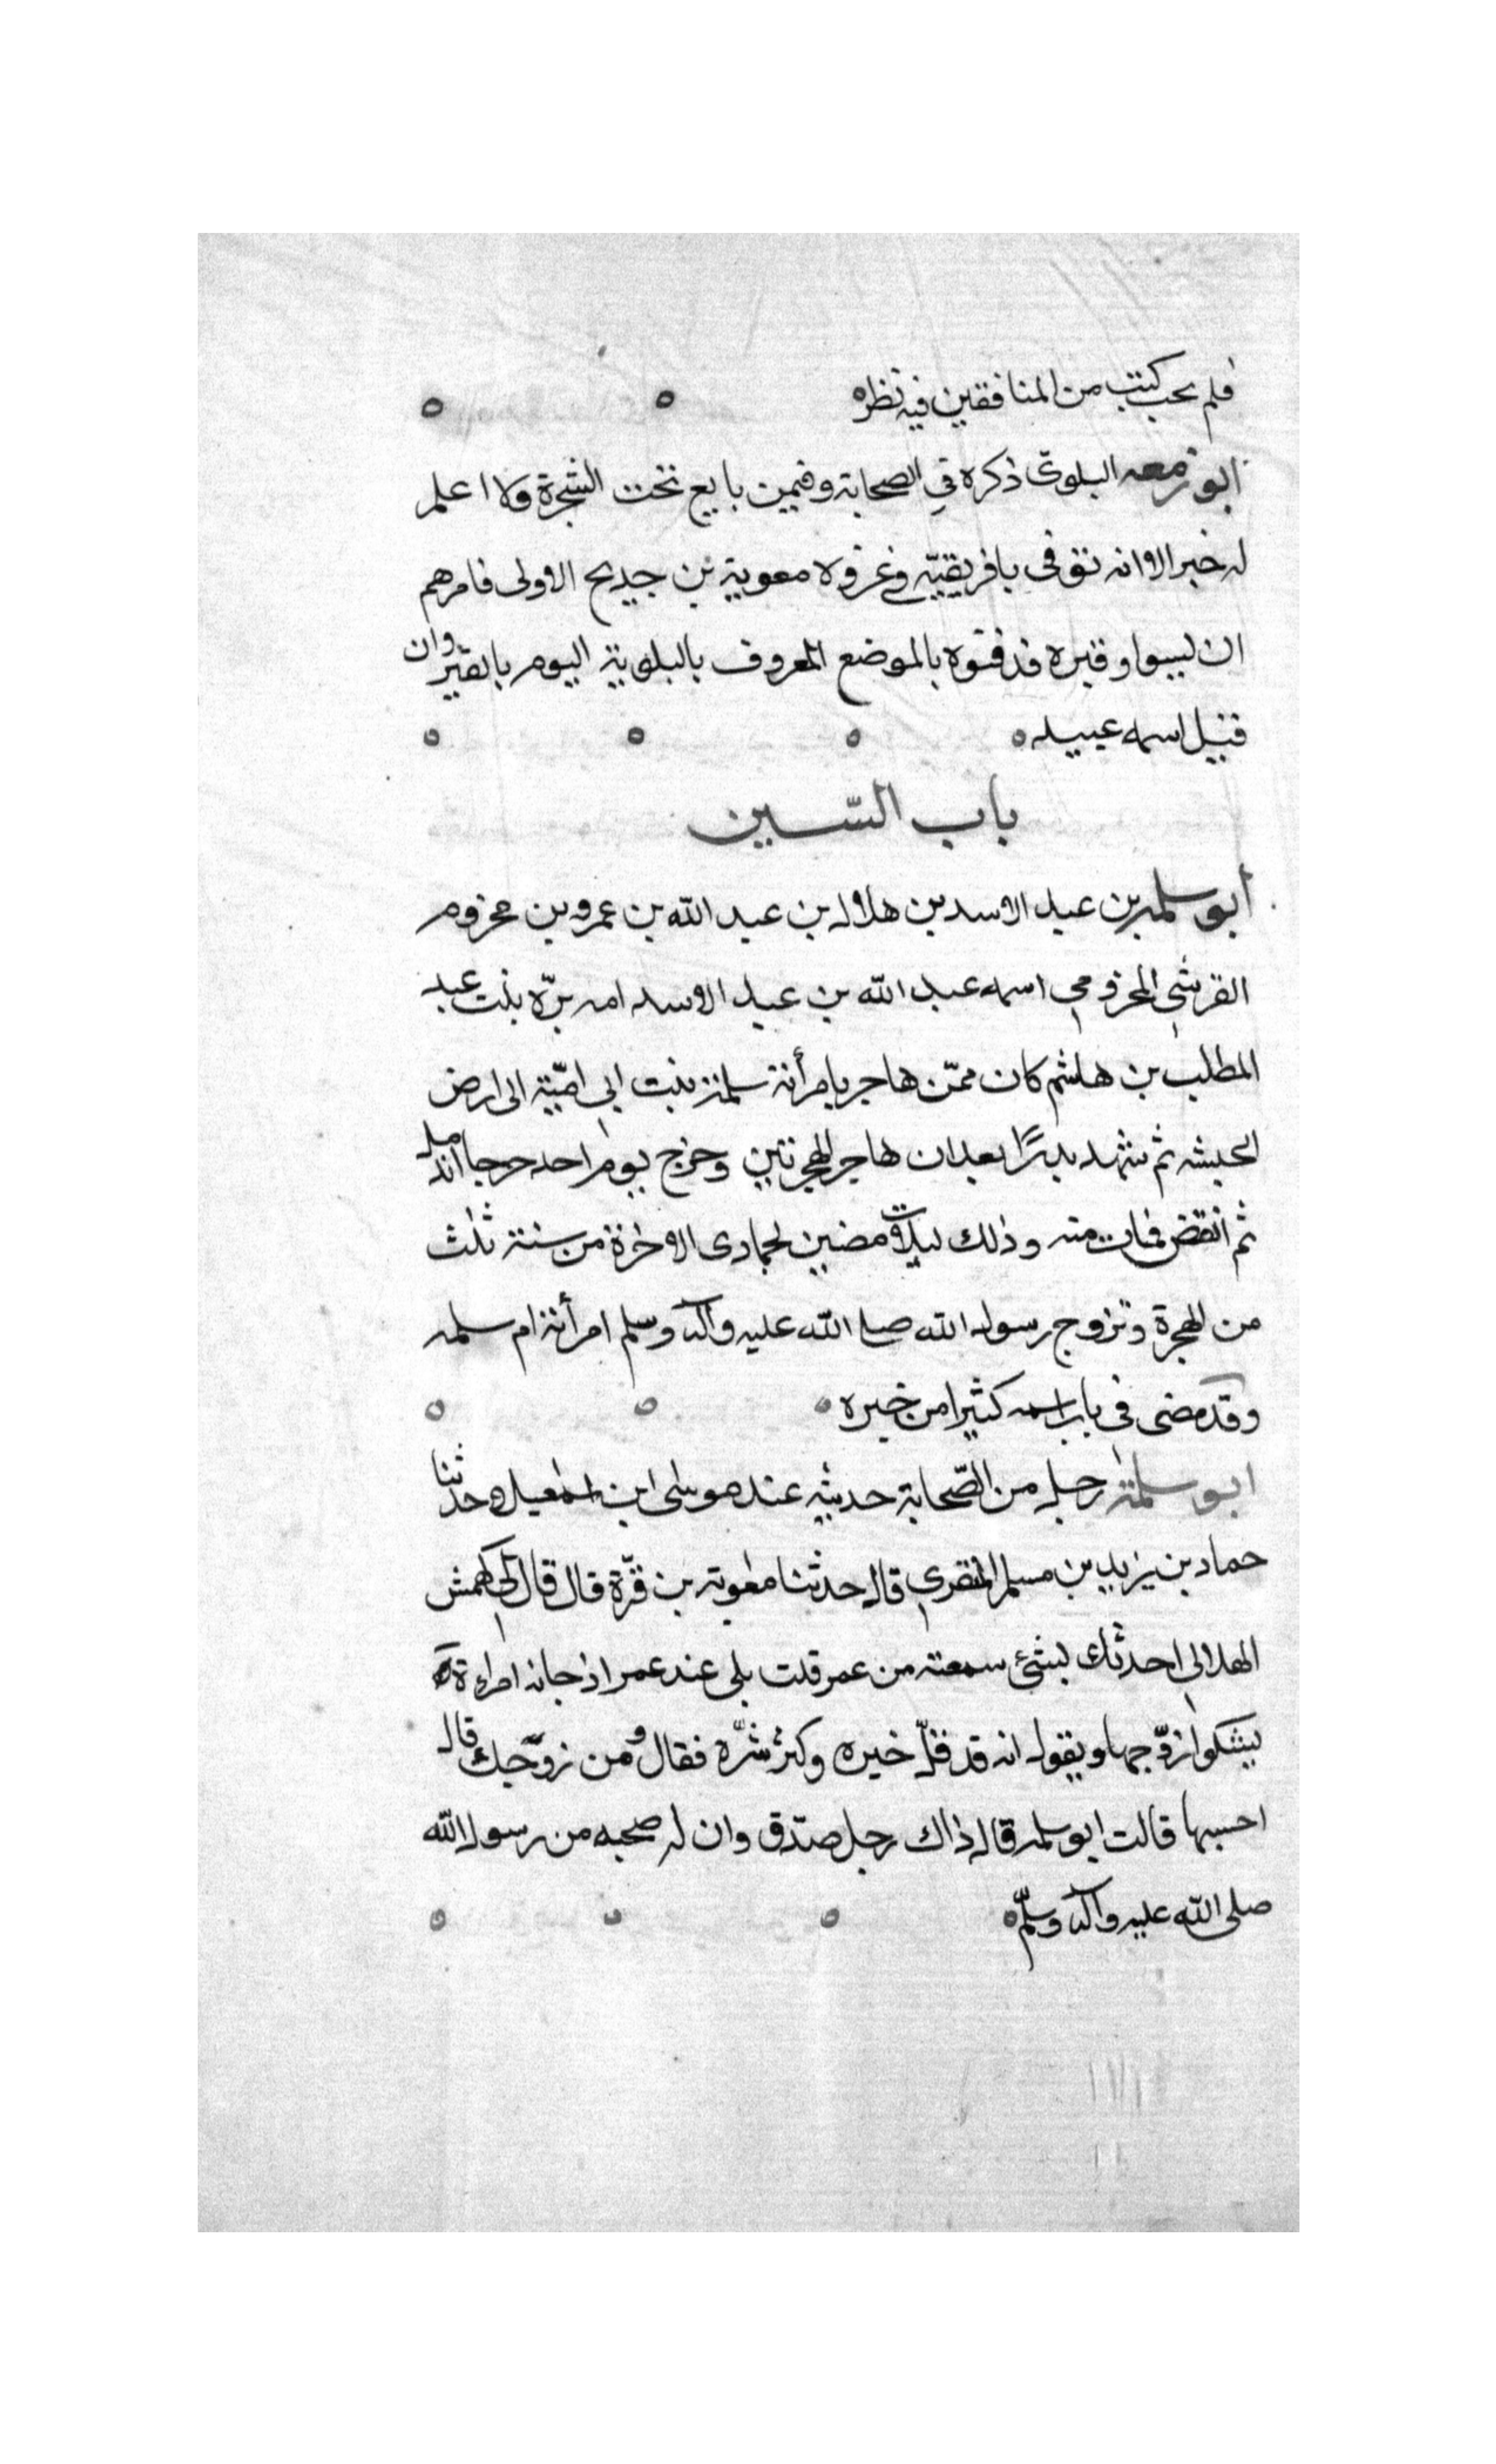 فلم يحب كتب من المنافقين فيه نظره
ابو زمعه البلوى ذكره في الصحابة وفيمن بايع تحت الشجرة ولا اعلم
له خبر الا انه توفى بافريقيّه في غزولا معوية بن جديح الاولى فامرهم
ان ليسوا وقبره فدفنوه بالموضع المعروف بالبلوية اليوم بالقيروان
فقيل اسمه عبيد
باب السّين
ابو سلمه بن عبد الاسد بن هلال بن عبد الله بن عمرو بن مخزوم
القرشي المخزومي اسمه عبد الله بن عبد الاسد امه برّه بنت عبد
المطلب بن هاشم كان ممّن هاجر بامرأته سلمة بنت ابي اميّة الى ارض
الحبشه ثم شهد بدرًا بعد ان هاجر الهجرتين وخرج يوم احد جرحا اندمل
ثم انتقض فمات منه وذلك لثلاث مضين لجمادى الاخرة من سنة ثلث
من الهجرة وتزوج رسول الله صلى الله عليه وآله وسلم امرأته ام سلمه
وقد مضى في باب اسمه كثيرا من خبره
ابو سلمة رجل من الصّحابة حديثه عند موسى ابن اسمعيل وحدثنا
حماد بن يزيد بن مسلم المنقري قال حدثنا معوية بن قرّة قال قال لي كهمش
الهلالي احدثك بشئ سمعته من عمر قلت بلى عند عمر اذ جاته امراءة
يشكوا زوّجها ويقول انه قد قلّ خيره وكثر شرّه فقال ومن زوّجك قال
احسبها قالت ابو سلمه قال ذاك رجل صدّق وان له صحبه من رسول الله
صلى الله عليه وآله وسلّم